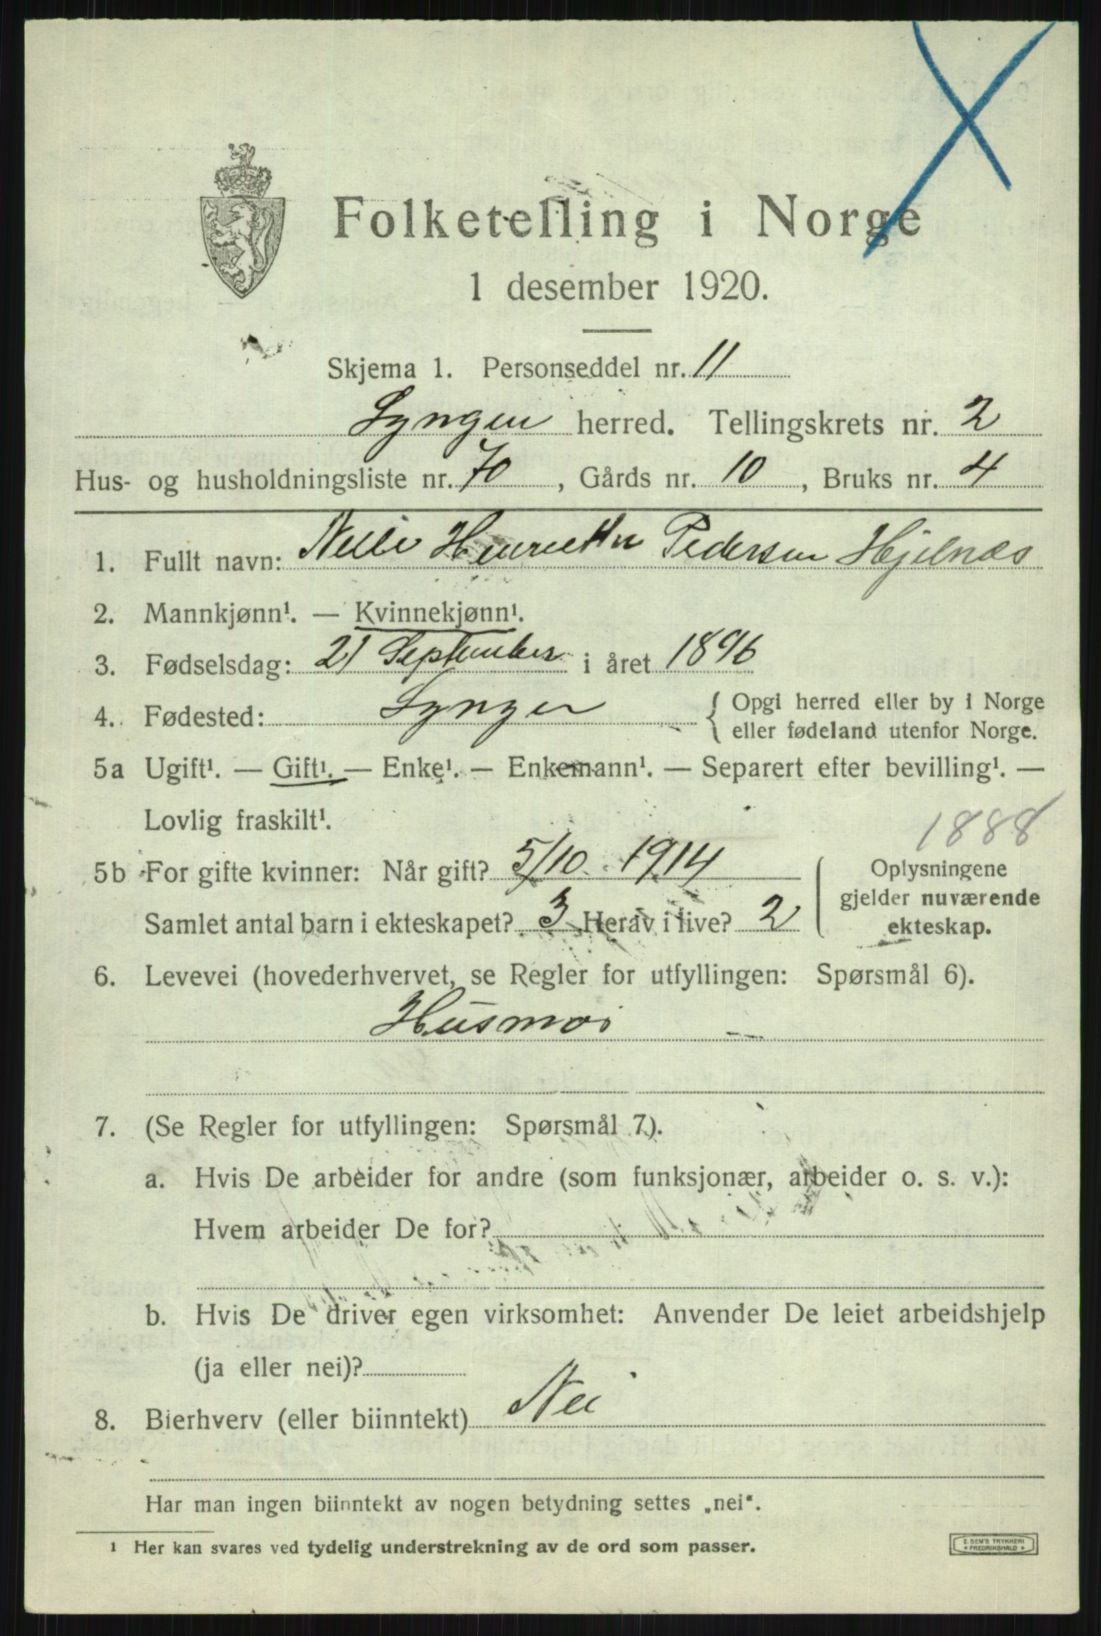 Folketelling i Norge
1 desember 1920.
Skjema 1. Personseddel nr. 11
Lyngen herred. Tellingskrets nr. 2
Hus- og husholdningsliste nr. 70, Gårds nr. 10, Bruks nr. 4
1. Fullt navn: Henrietta Pedersen Hjelnæs
2. Mannkjønn¹. — Kvinnekjønn¹.
3. Fødselsdag: 21 September i året 1896
4. Fødested: Lyngen { Opgi herred eller by i Norge
eller fødeland utenfor Norge.
5a Ugift¹. — Gift¹. — Enke¹. — Enkemann¹. — Separert efter bevilling¹. —
Lovlig fraskilt¹.
1888
5b For gifte kvinner: Når gift? 5/10 1914
Samlet antal barn i ekteskapet? 3 Herav i live? 2
Oplysningene
gjelder nuværende
ekteskap.
6. Levevei (hovederhvervet, se Regler for utfyllingen: Spørsmål 6).
Husmoi
7. (Se Regler for utfyllingen: Spørsmål 7).
a. Hvis De arbeider for andre (som funksjonær, arbeider o. s. v.):
Hvem arbeider De for?
b. Hvis De driver egen virksomhet: Anvender De leiet arbeidshjelp
(ja eller nei)?
8. Bierhverv (eller biinntekt) Nei
Har man ingen biinntekt av nogen betydning settes „nei“.
¹ Her kan svares ved tydelig understrekning av de ord som passer.
E. SEM'S TRYKKERI
FREDRIKSHALD